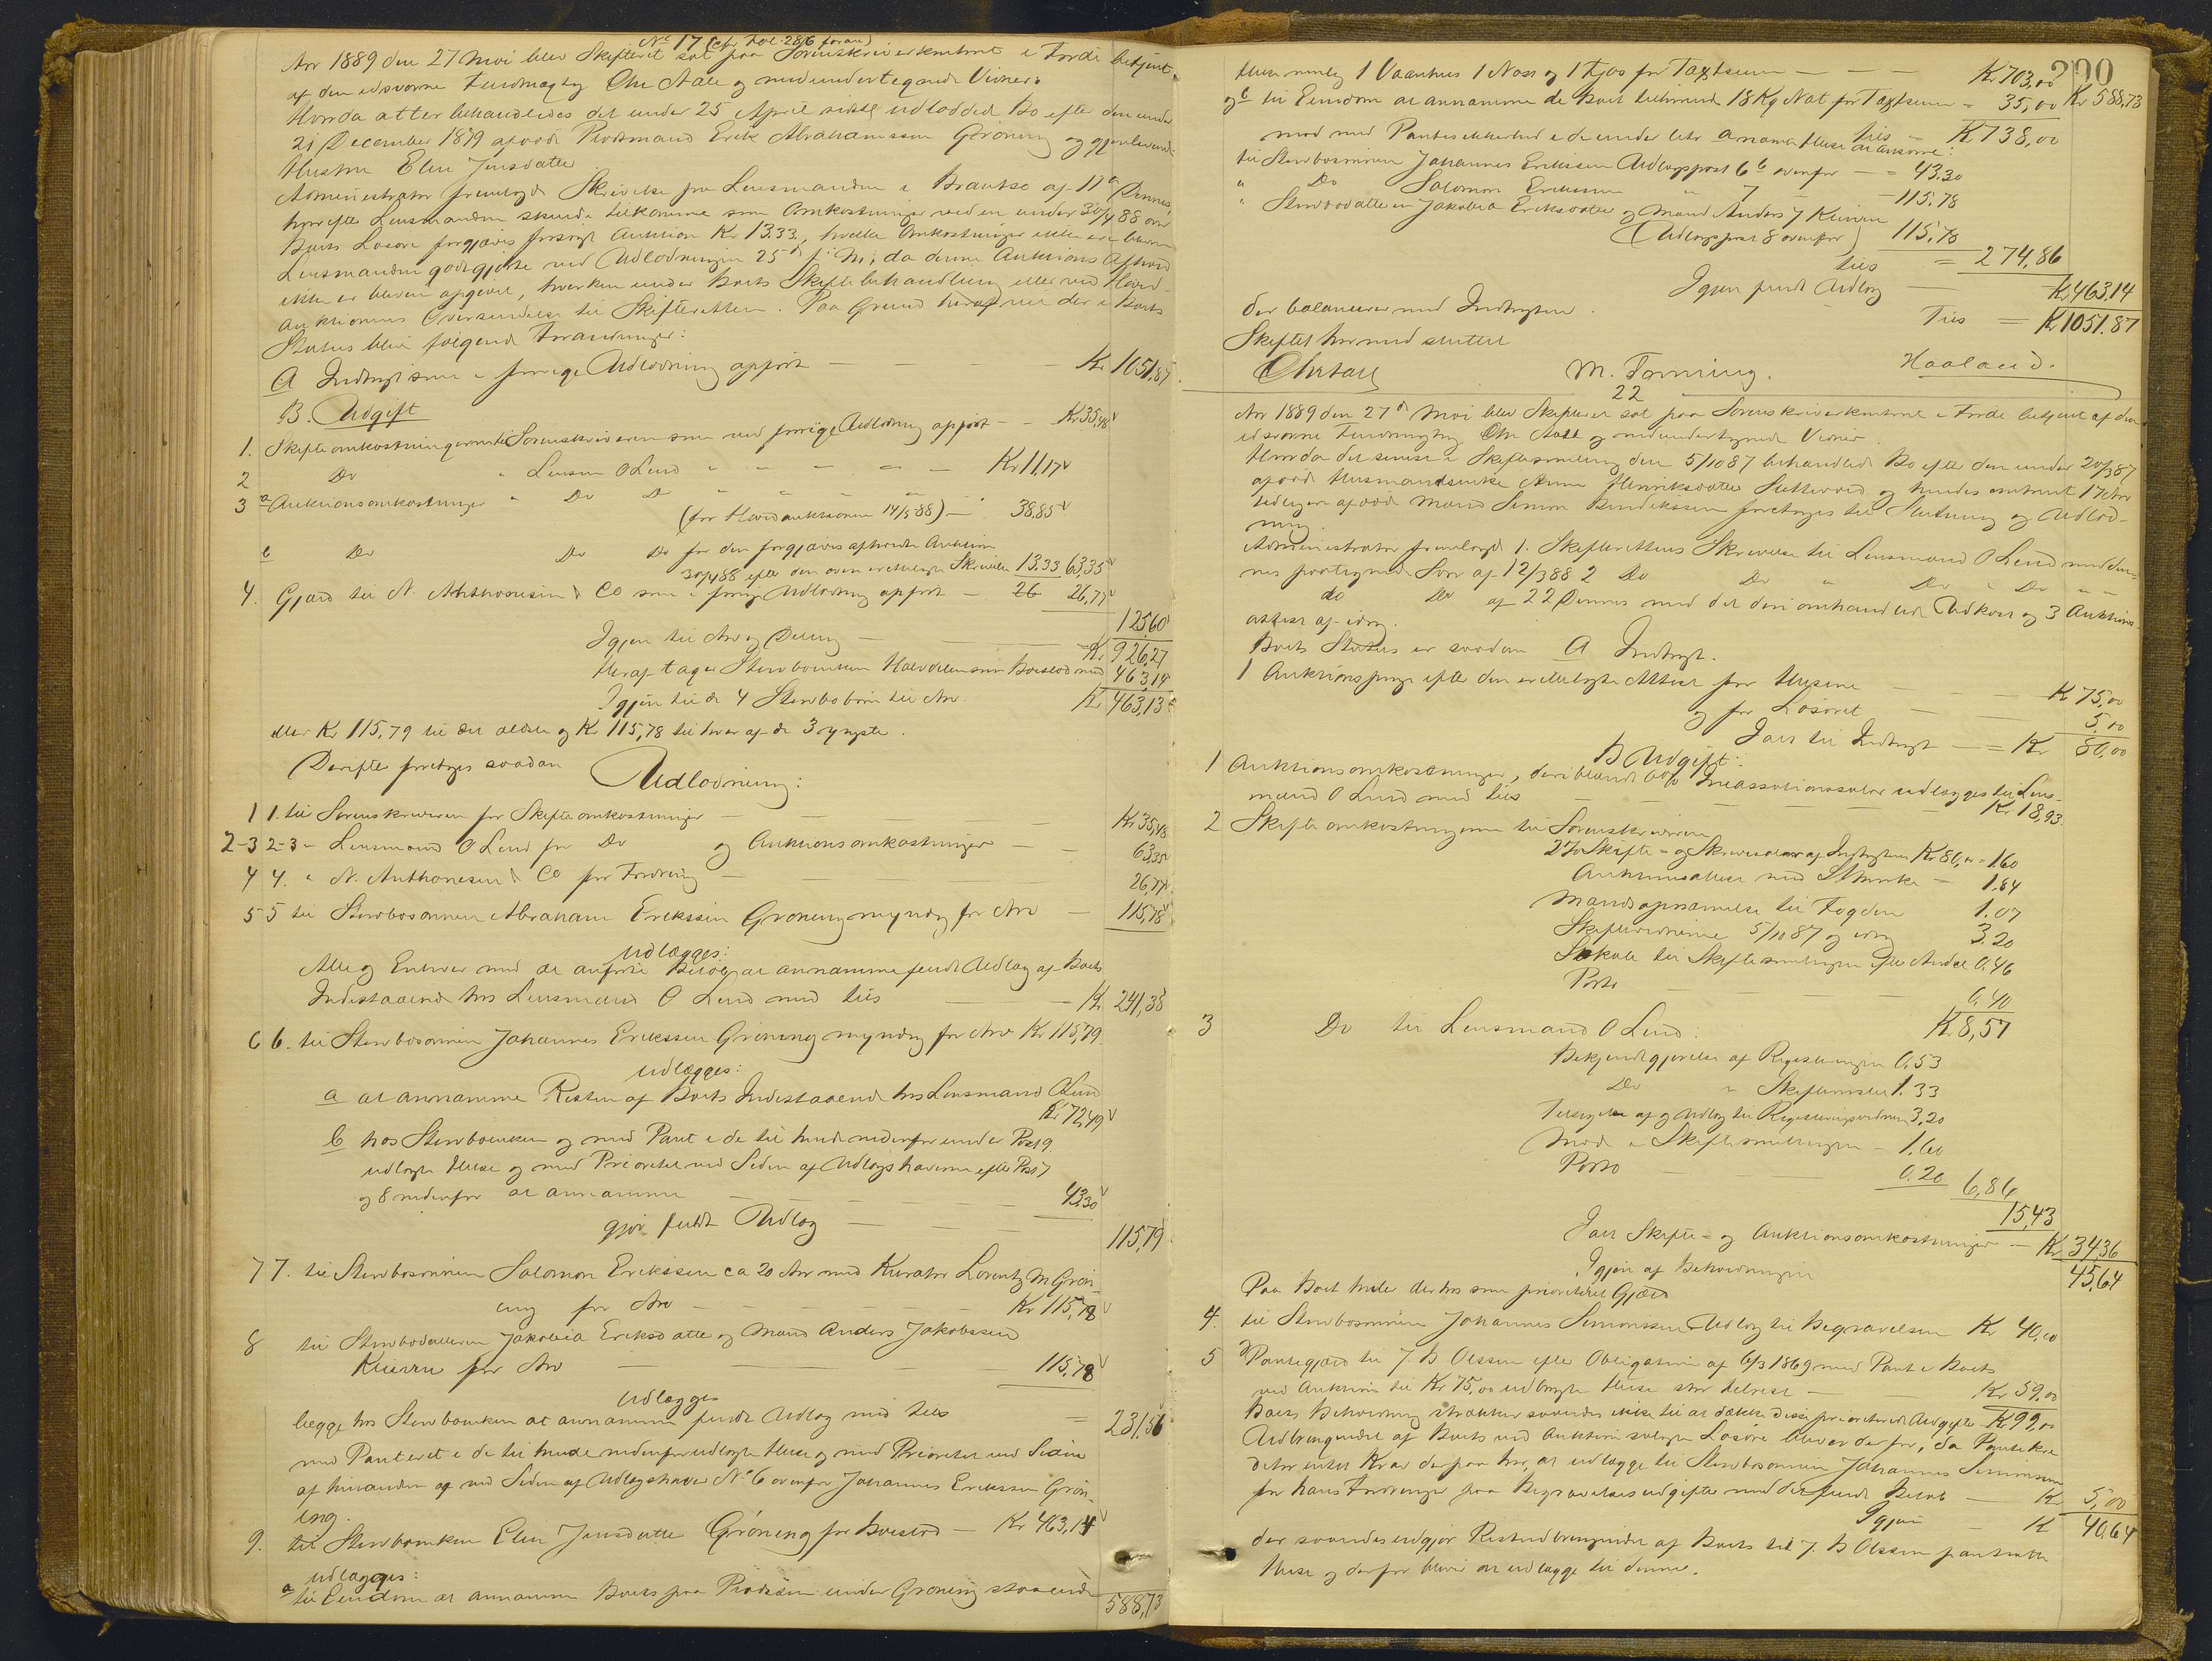 No 17 (cfr fol. 286 foran)
Aar 1889 den 27 Mai blev Skifteret sat paa Sorenskriverkontoret i Førde betjent
af den edsvorne Fuldmægtig Chr Aall og medundertegnede Vidner.
Hvorda atter behandledes det under 25 April sidstl udloddede Bo efter den under
21 December 1879 afdøde Pladsmand Erik Abrahamssen Grøning og gjenlevende
Hustru Elen Jensdatter
Administrator fremlagde Skrivelse fra Lensmanden i Bræmso af 11te Dennes,
hvorefter Lensmanden skulde tilkomme som Omkostninger ved en under 30/4 88 over
Boets Løsøre forgjæves forsøgt Auktion Kr 13.33, hvilke Omkostninger ikke ere blevne
Lensmanden godtgjorte ved Udlodningen 25de f. M; da denne Auktions Afhold
ikke er bleven opgivet, hverken under Boets Skiftebehandling eller ved Hoved-
auktionens Oversendelse til Skifteretten. Paa Grund heraf vil der i Boets
Status blive følgende Forandringer:
A Indtægt som i forrige Udlodning opført — Kr 1051.87
B. Udgift
1. Skifteomkostningerne til Sorenskriveren som ved forrige Udlodning opført - - Kr 35,48
2 Do " Lensm O Lend " " " " — Kr 11,17
3 a Auktionsomkostninger " Do Do " " " "
(for Hovedauktionen 14/5 88) — " 38.85
b Do Do Do for den forgjæves afholdte Auktion
30/4 88 efter den oven ermeldte Skrivelse 13.33 63,35
4. Gjæld til N. Anthonesen & Co som i forrige Udlodning opført — 26 26,77
125,60
Igjen til Arv og Deling — Kr 926,27
Heraf tager Stervboenken Halvdelen som Boeslod med 463,14
Igjen til de 4 Stervbobørn til Arv. Kr 463,13
eller Kr 115,79 til den ældste og Kr 115,78 til hver af de 3 yngste.
Derefter foretoges saadan Udlodning:
1 1. til Sorenskriveren for Skifteomkostninger — Kr 35,48
2-3 2-3 " Lensmand O Lend for Do og Auktionsomkostninger — 63,35
4 4. " N. Anthonesen & Co for Fordring — 26,77
5 5 til Stervbosønnen Abraham Erikssen Grøning myndig for Arv — 115,78
udlægges:
Alle og Enhver med de anførte Beløb at annamme fuldt Udlæg af Boets
Indestaaende hos Lensmand O Lend med tils — Kr 241,38
6 6. til Stervbosønnen Johannes Erikssen Grøning myndig for Arv Kr 115,79
udlægges:
a at annamme Resten af Boets Indestaaende hos Lensmand O Lend
Kr 72,49
b hos Stervboenken og med Pant i de til hende nedenfor under Post 9
udlagte Huse og med Prioritet ved Siden af Udlægshaverne efter Post 7
og 8 nedenfor at annamme — 43,30
gjør fuldt Udlæg — 115,79
7 7. til Stervbosønnen Salomon Erikssen ca 20 Aar med Kurator Lorentz M Grøn-
ing for Arv — Kr 115,78
8 til Stervbodatteren Jakobia Eriksdatter og Mand Anders Jakobssen
for Arv — 115,78
udlægges
begge hos Stervboenken at annamme fuldt Udlæg med tils = 231,56
med Panteret i de til hende nedenfor udlagte Huse og med Prioritet ved Siden
af hinanden og ved Siden af Udlægshaver No 6 ovenfor Johannes Erikssen Grøn-
ing.
9. til Stervboenken Elen Jensdatter Grøning for Boeslod — Kr 463,14
udlægges:
a til Eiendom at annamme Boets paa Pladsen under Grøning staaende
588,73
290
Huse nemlig 1 Vaanhus 1 Nøst og 1 Fjøs for Taxtsum — Kr 703,00 Kr 588,73
og b til Eiendom at annamme de Boet tilhørende 18 Kg Not for Taxtsum = 35,00
tils = Kr 738,00
mod med Pantesikkerhed i de under litr a nævnte Huse at ansvare:
til Stervbosønnen Johannes Erikssen Udlægspost 6 b ovenfor — = 43.30
" Do Salomon Erikssen " 7 — 115.78
" Stervbodatteren Jakobia Eriksdatter og Mand Anders J
(Udlægspost 8 ovenfor) 115,78
tils = 274,86
Igjen fuldt Udlæg — Kr 463,14
Tils = Kr 1051.87
der balancerer med Indtægten.
Skiftet hermed sluttet
Chr Aall M. Førning. Haaland.
22
Aar 1889 den 27de Mai blev Skifteret sat paa Sorenskriverkontoret i Førde betjent af den
edsvorne Fuldmægtig Chr Aall og medundertegnede Vidner.
Hvorda det senest i Skiftesamling den 5/10 87 behandlede Bo efter den under 20/3 87
afdøde Husmandsenke Anne Henriksdatter Sætterød og hendes omtrent 17 Aar
tidligere afdøde Mand Simon Bendikssen foretoges til Slutning og Udlod-
ning.
Administrator fremlagde 1. Skifterettens Skrivelse til Lensmand O Lend med den-
nes paategnede Svar af 12/3 88 2 Do Do " Do " Do " "
do Do af 22 Dennes med det deri omhandlede Udkast og 3 Auktions-
attest af idag.
Boets Status er saadan A Indtægt.
1 Auktionspenge efter den ermeldte Attest for Husene — Kr 75,00
og for Løsøret — 5,00
Ialt til Indtægt — = Kr 80,00
B Udgift:
1 Auktionsomkostninger, deriblandt 6% Incassationssalær udlægges til Lens-
mand O Lend med tils — Kr 18,93
2 Skifteomkostningerne til Sorenskriveren
2% Skifte- og Skriversalær af Indtægten Kr 80,00 = 1.60
Auktionsattest med — 1.84
Mandsopnævnelse til Fogden 1.07
Skiftevidnerne 5/10 87 og idag 3.20
Lokale til Skiftesamlingen efter Andel 0.46
Porto — 0.40
Kr 8,57
3 Do til Lensmand O Lend:
Bekjendtgjørelse af Registreringen 0,53
Do " Skiftemødet 1.33
Tilsigelse af og Udlæg til Registreringsvidner 3,20
Møde i Skiftesamlingen — 1.60
Porto — 0.20 6,86
15,43
Ialt Skifte- og Auktionsomkostninger — Kr 34,36
Igjen af Beholdningen 45,64
Paa Boet hviler derhos som prioriteret Gjæld
4. til Stervbosønnen Johannes Simonssen Udlæg til Begravelsen Kr 40,00
5 Pantegjæld til J. B Olssen efter Obligation af 6/3 1869 med Pant i Boets
ved Auktion til Kr 75,00 udbragte Huse stor tilrest — Kr 59,00
Boets Beholdning strækker saaledes ikke til at dække disse prioriterede Udgifter Kr 99,00
Udbringendet af Boets ved Auktion solgte Løsøre bliver derfor, da
intet Krav derpaa har, at udlægge til Stervbosønnen Johannes Simonssen
for hans Fordringer paa Begravelsesudgifter med det fulde Beløb — Kr 5,00
Igjen — Kr 40,64
der saaledes udgjør Restudbringendet af Boets til J. B Olssen pantsatte
Huse og derfor bliver at udlægge til denne.